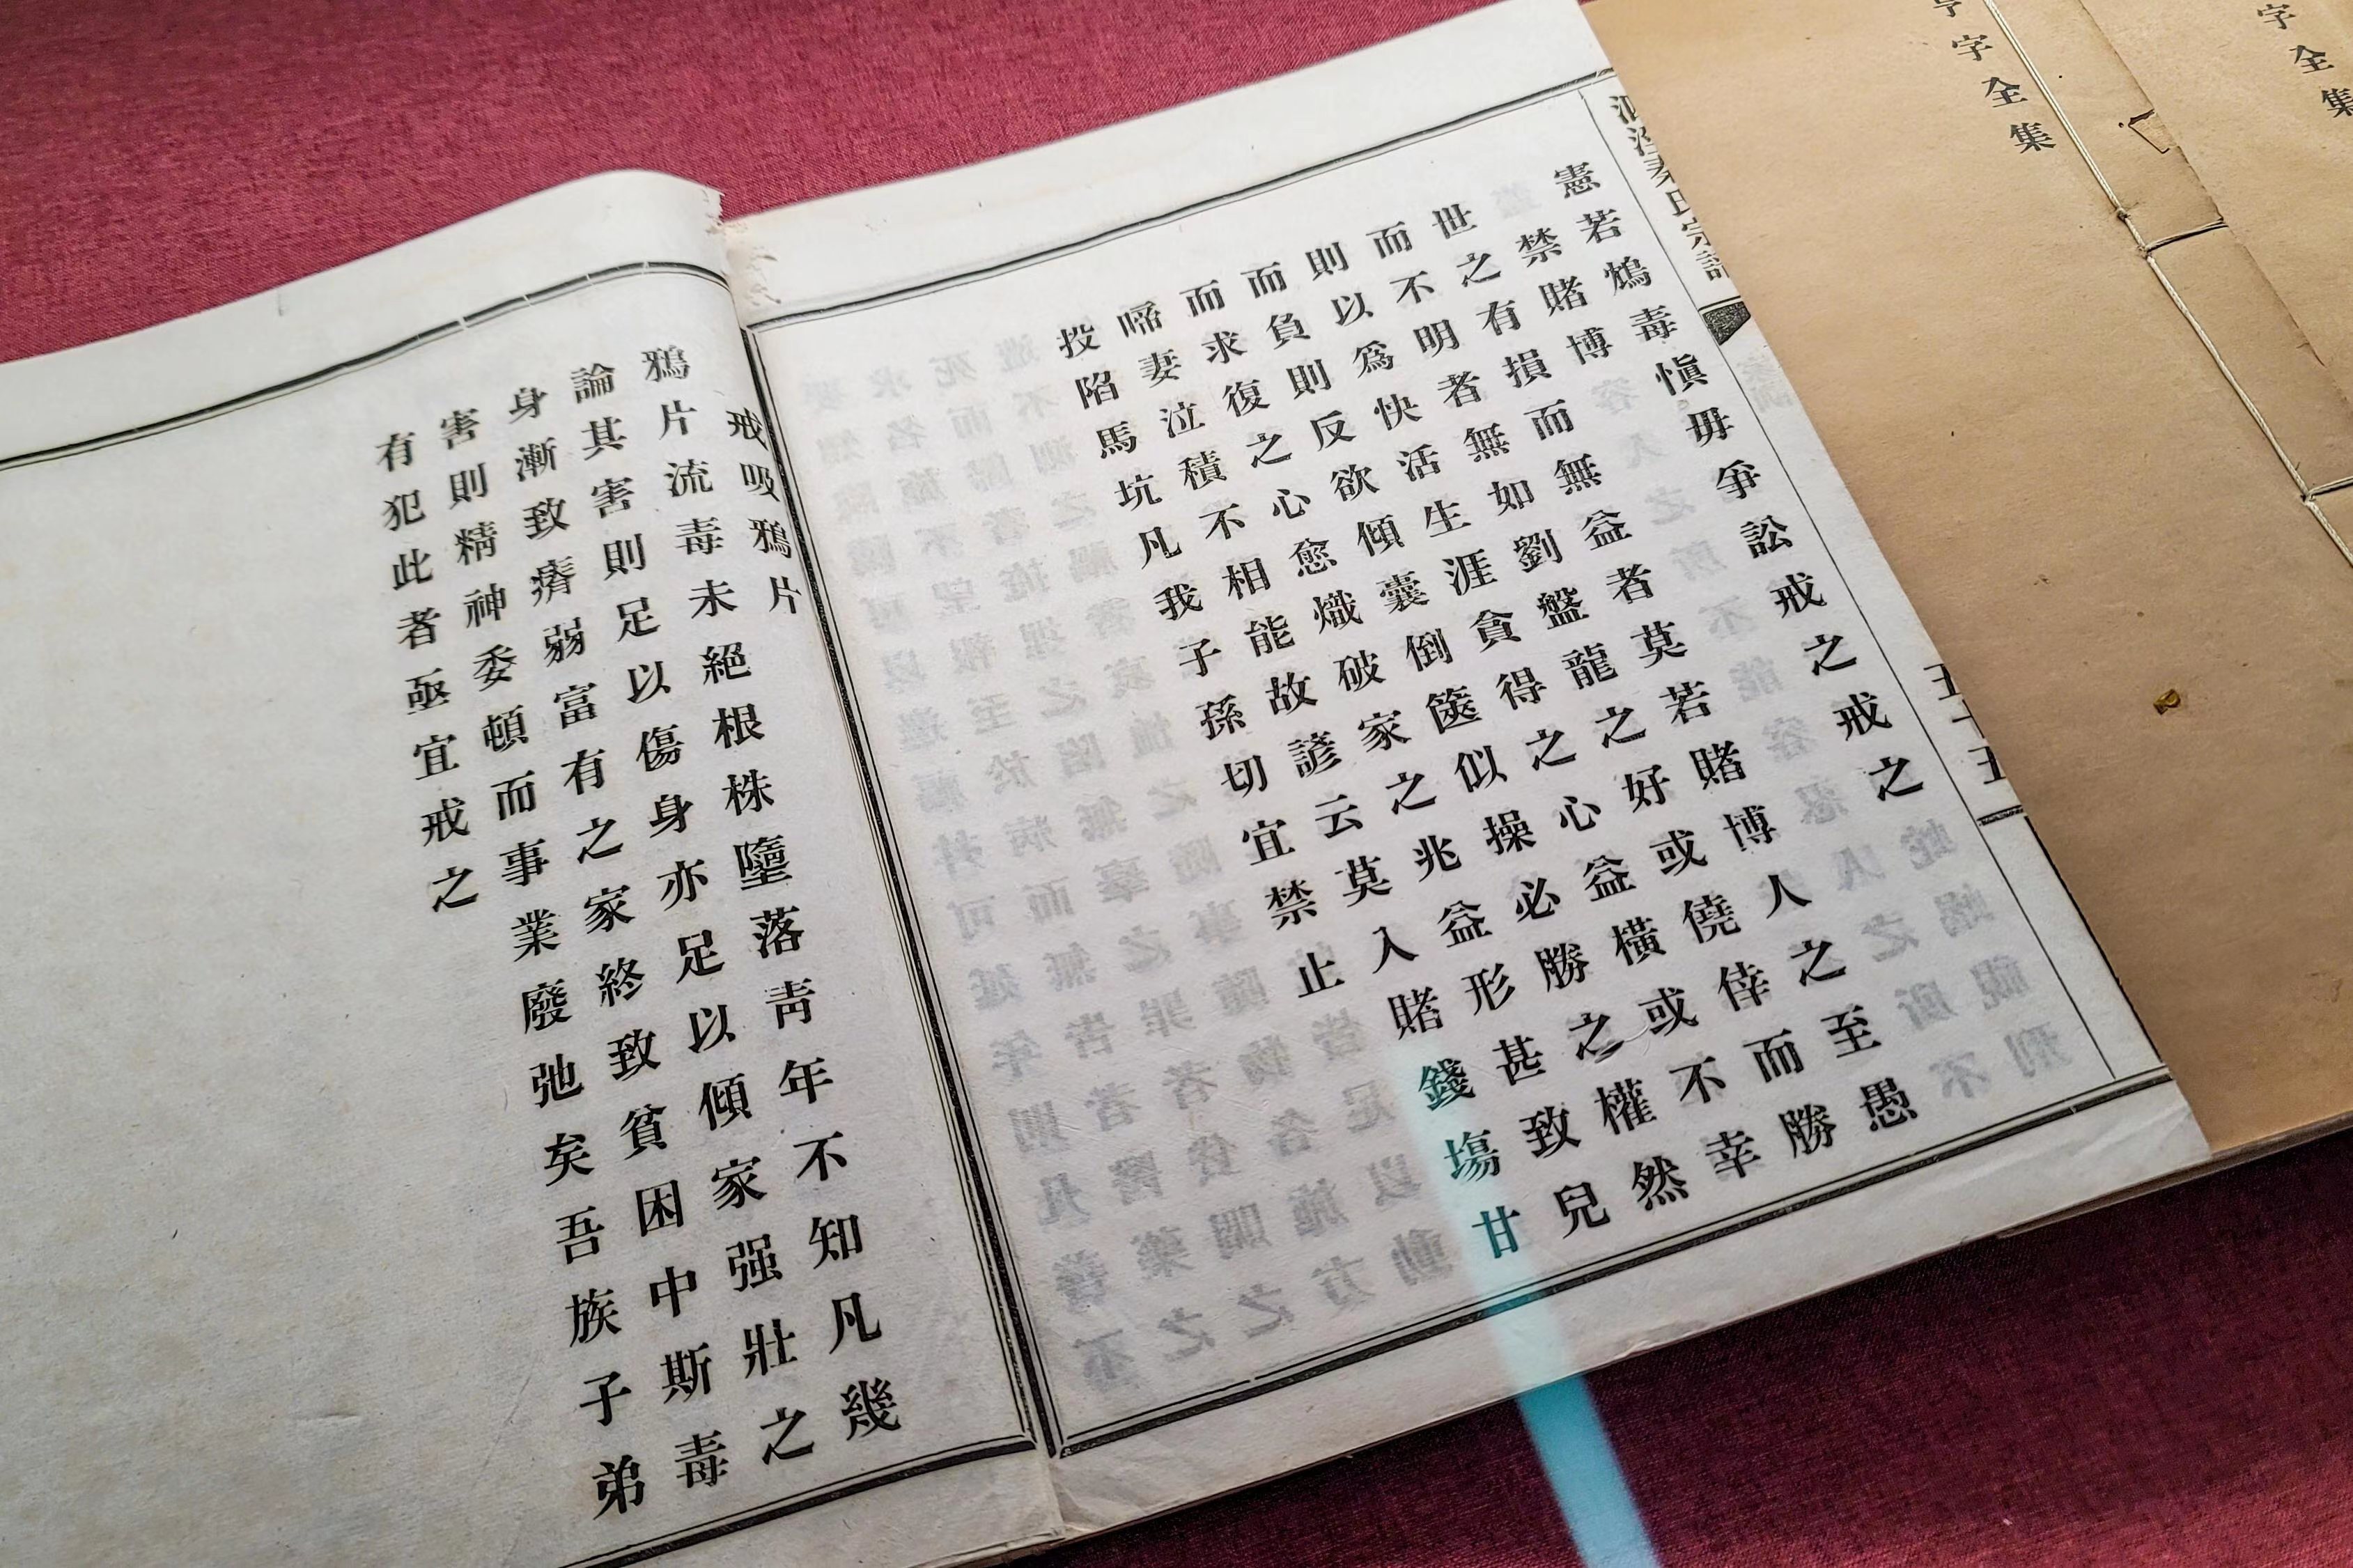 字全集
字全集
秦氏宗譜
五十五
憲若鴆毒愼毋爭訟戒之戒之
禁賭博
世之有損而無益者莫若賭博人之至愚
而不明者無如劉盤龍之好或僥倖而勝
則以爲快活生涯貪得之心益橫或不幸
而負則反欲傾囊倒篋似操必勝之權然
而求復之心愈熾破家之兆益形甚致兒
啼妻泣積不相能故諺云莫入賭錢塲甘
投陷馬坑凡我子孫切宜禁止
戒吸鴉片
鴉片流毒未絕根株墮落靑年不知凡幾
論其害則足以傷身亦足以傾家强壯之
身漸致瘠弱富有之家終致貧困中斯毒
害則精神委頓而事業廢弛矣吾族子弟
有犯此者亟宜戒之